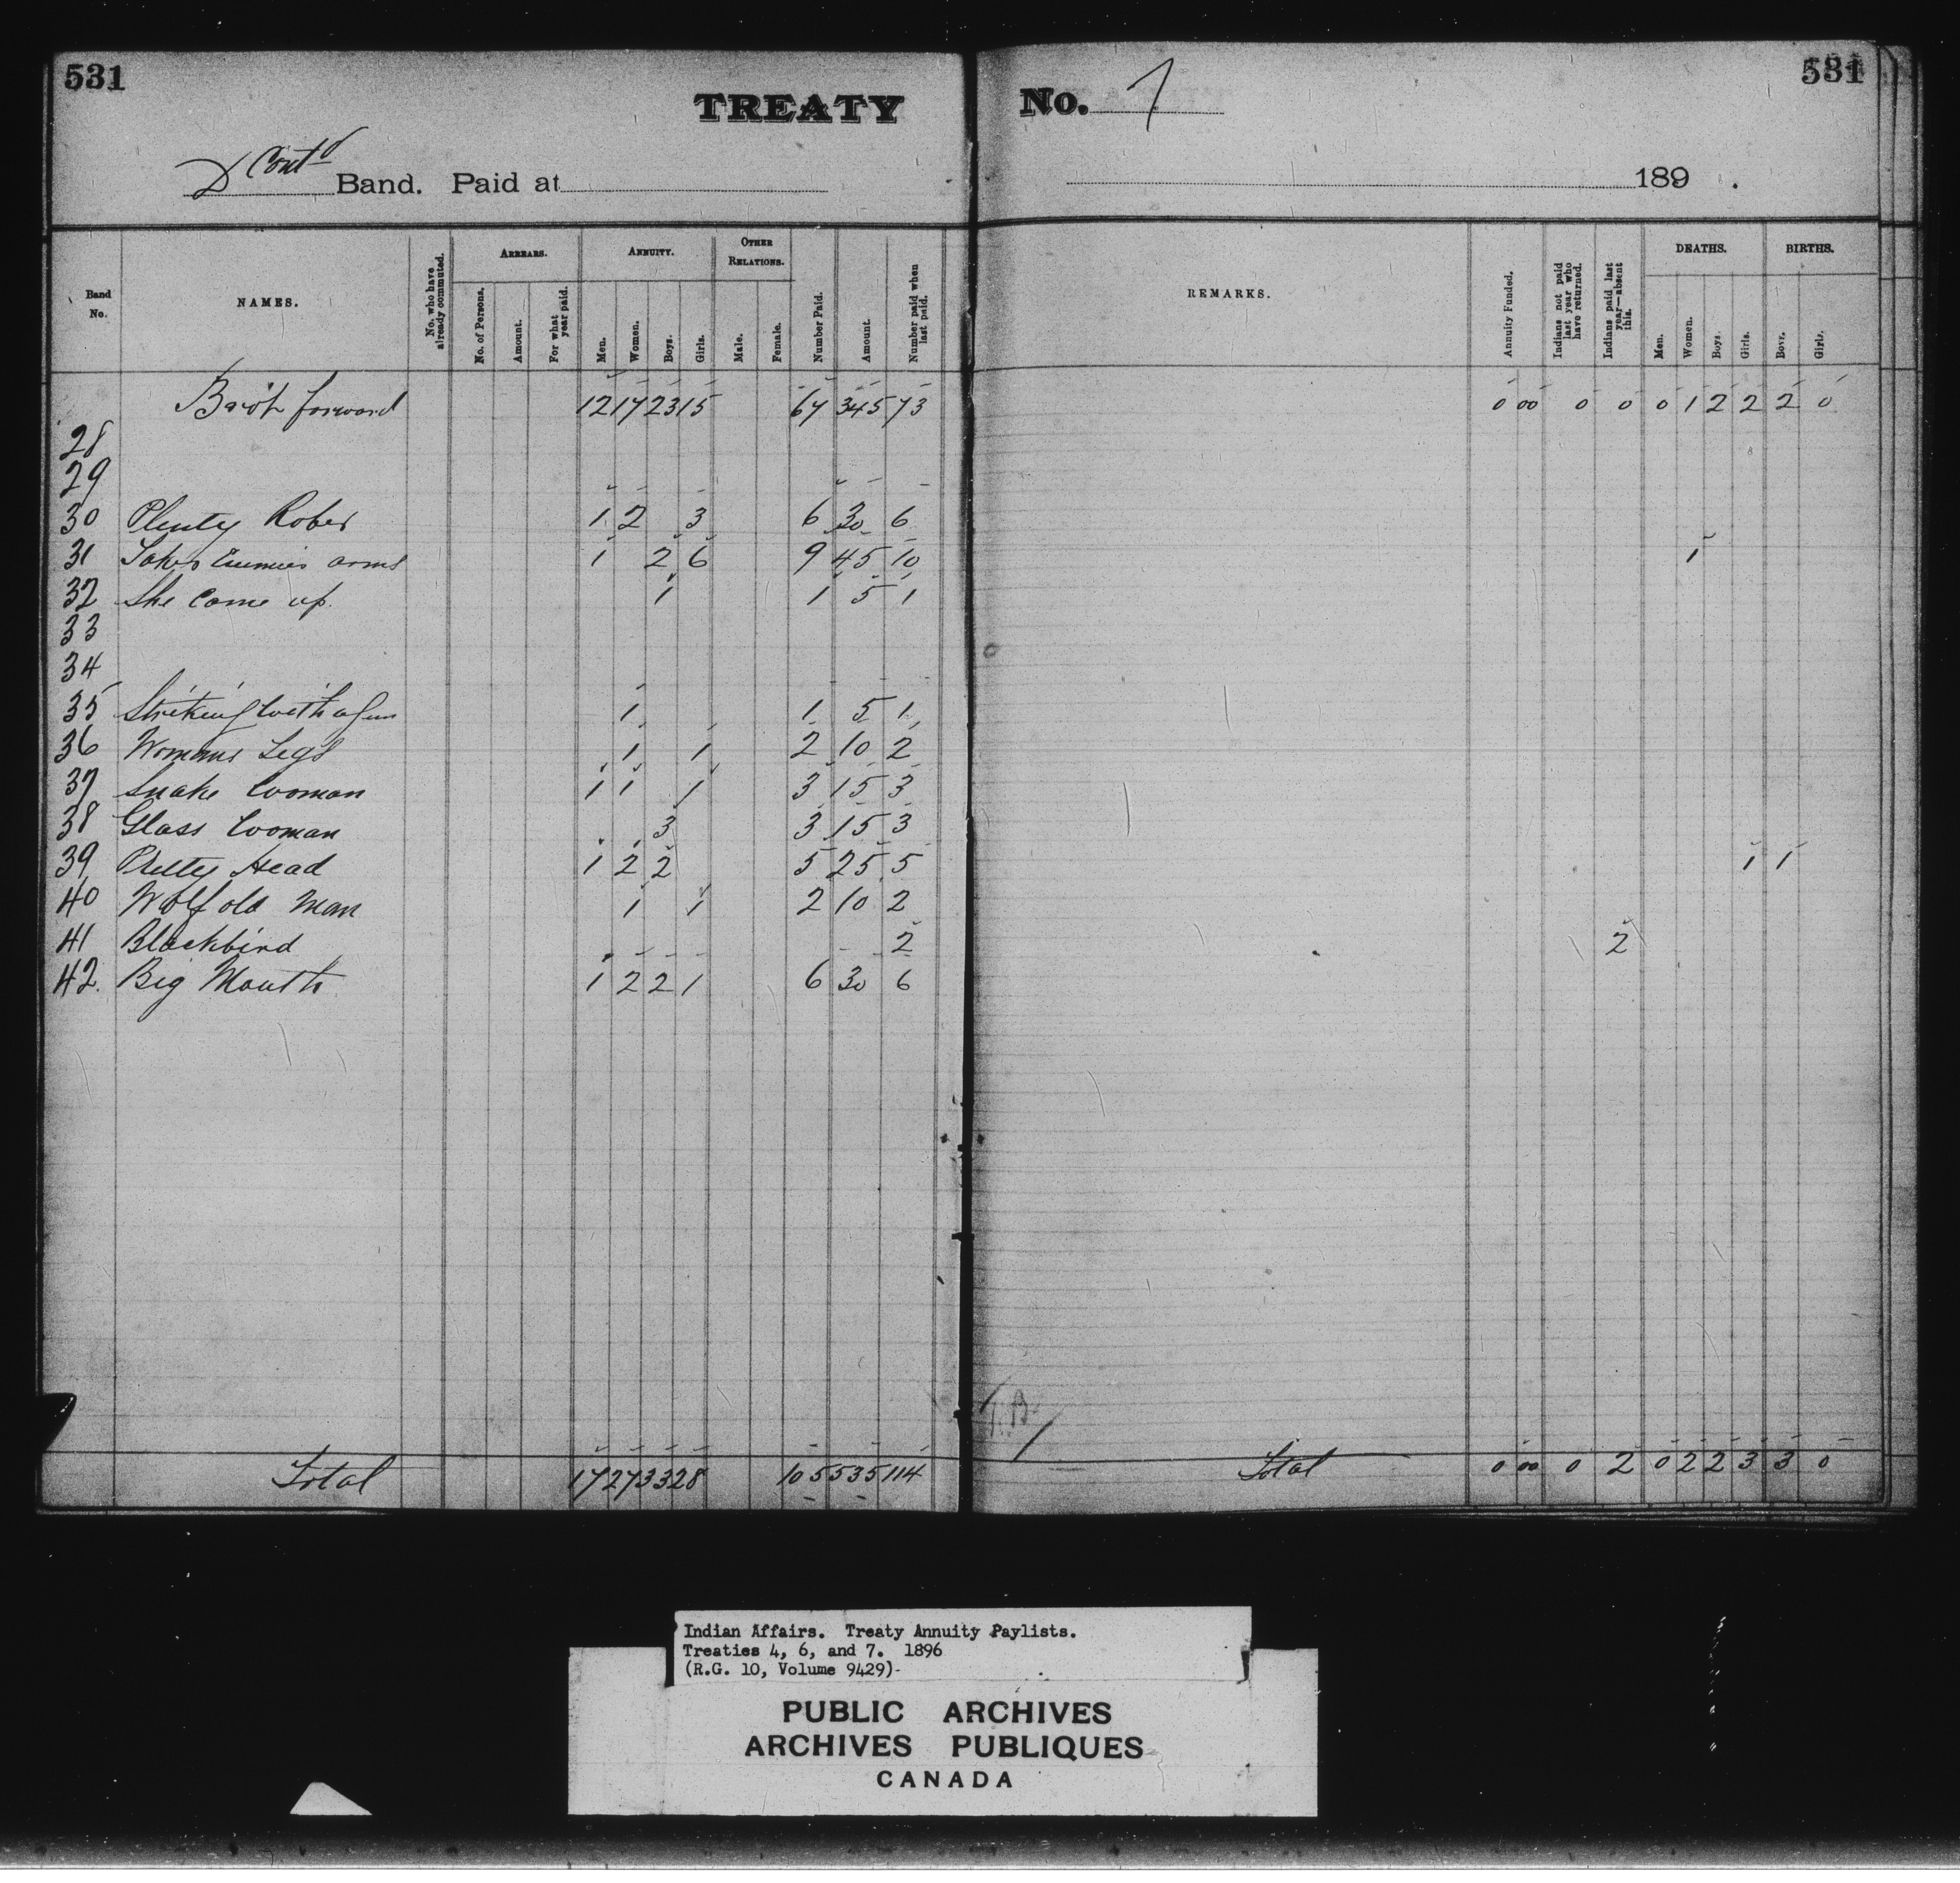 531
TREATY No. 7
531
D Cont'd Band. Paid at 189 .
Band No.
NAMES.
No. who have already commuted.
ARREARS.
No. of Persons.
Amount.
For what year paid.
ANNUITY.
Men.
Women.
Boys.
Girls.
OTHER RELATIONS.
Male.
Female.
Number Paid.
Amount.
Number paid when last paid.
REMARKS.
Annuity Funded.
Indians not paid last year who have returned.
Indians paid last year—absent this.
DEATHS.
Men.
Women.
Boys.
Girls.
BIRTHS.
Boys.
Girls.
Bro't forward 12 17 23 15 67 345 73 0 00 0 0 0 1 2 2 2 0
28
29
30 Plenty Robes 1 2 3 6 30 6
31 Takes Enemies arms 1 2 6 9 45 10 1
32 She Come up. 1 1 5 1
33
34
35 Striking with a gun 1 1 5 1
36 Womans Legs 1 1 2 10 2
37 Snake Woman 1 1 1 3 15 3
38 Glass Woman 3 3 15 3
39 Pretty Head 1 2 2 5 25 5 1 1
40 Wolf old Man 1 1 2 10 2
41 Blackbird 2 2
42. Big Mouth 1 2 2 1 6 30 6
Total 17 27 33 28 105 535 114 Total 0 00 0 2 0 2 2 3 3 0
Indian Affairs. Treaty Annuity Paylists.
Treaties 4, 6, and 7. 1896
(R.G. 10, Volume 9429)
PUBLIC ARCHIVES
ARCHIVES PUBLIQUES
CANADA